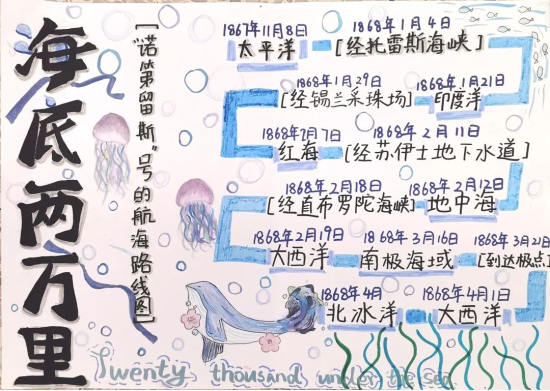 海底两万里
[“诺第留斯”号的航海路线图]
1867年11月8日 1868年1月4日
太平洋 [经托雷斯海峡]
1868年1月29日 1868年1月21日
[经锡兰采珠场] 印度洋
1868年7月7日 1868年2月11日
红海 [经苏伊士地下水道]
1868年2月18日 1868年2月12日
[经直布罗陀海峡] 地中海
1868年2月19日 1868年3月16日 1868年3月21日
大西洋 南极海域 [到达极点]
1868年4月 1868年4月1日
北冰洋 大西洋
Twenty thousand under the sea